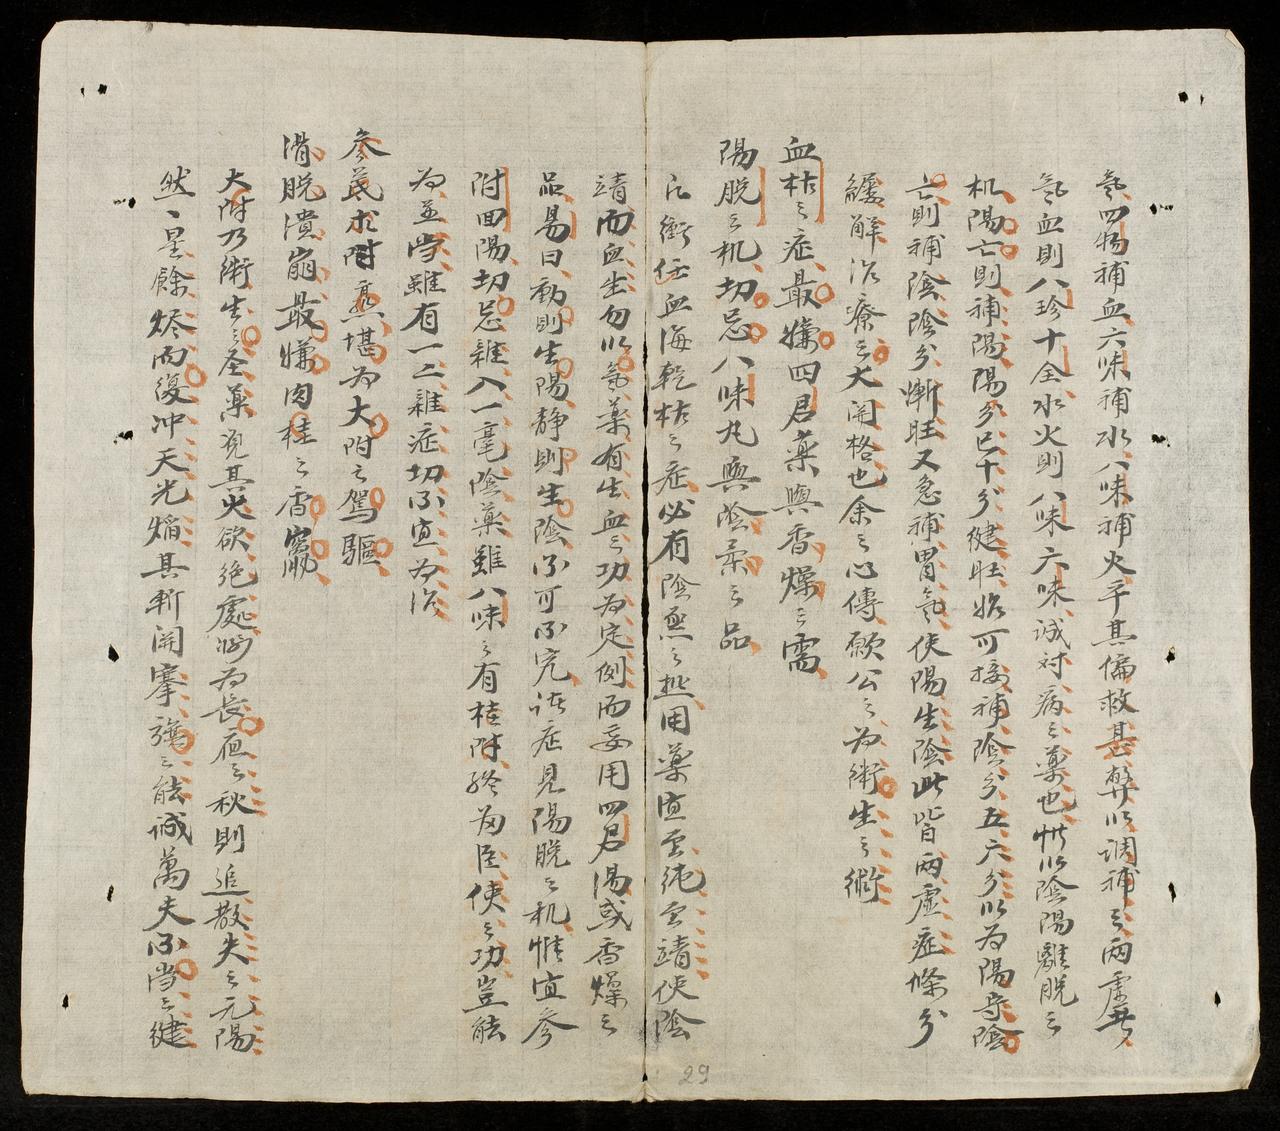 氣四物補血六味補水八味補火平其偏救其弊以調補之兩虛無
氣血則八珍十全水火則八味六味誠对病之藥也惟以陰陽離脫之
机陽亡則補陽陽分已十分健旺始可接補陰分五六分以為陽守陰
亡則補陰陰分漸旺又急補胃氣使陽生陰此皆兩虛症條分
縷解治療之大関格也余之心傳願公之為衛生之術
血枯之症最嫌四君藥與香燥之需
陽脫之机切忌八味丸與陰柔之品
凡衝任血海乾枯之症必有陰燕之 用藥宜至純至靖使陰
靖而血生勿以氣藥有生血之功為定例而妄用四君湯或香燥之
品易曰動則生陽静則生陰不可不究諸症見陽脫之机惟宜參
附回陽切忌雜入一毫陰藥雖八味之有桂附終為臣使之功豈能
為並當雖有一二雜症切不宜為治
參芪朮附 堪為大附之駕驅
滑脫潰崩最嫌肉桂之香竄
大附乃衛生之圣藥况其火欲絶處 為長 之秋則追散失之元陽
然一星餘燼而復冲天光焰其斬関搴旗之能誠萬夫不當之健
29